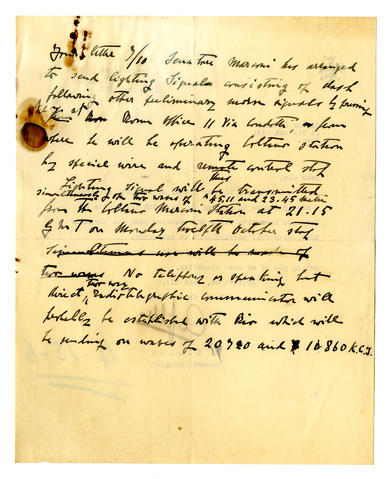 Your letter 7/10 Senatore Marconi has arranged
to send lighting signal consisting of dash
following other preliminary morse signals by pressing
key at
Rome Office 11 Via Condotti, from
where he will be operating Coltano station
by special wire and remote control stop
Lighting signal will be thus transmitted
simultaneously on the two waves of 45.11 and 23.45 meters
from the Coltano Marconi station at 21.15
G.M.T on Monday twelfth October stop
Simultaneous use will be made of
two waves No telephony or speaking but
direct two way radiotelegraphic communication will
probably be established with Rio which will
be sending on waves of 20700 and 10860 K.C.S.